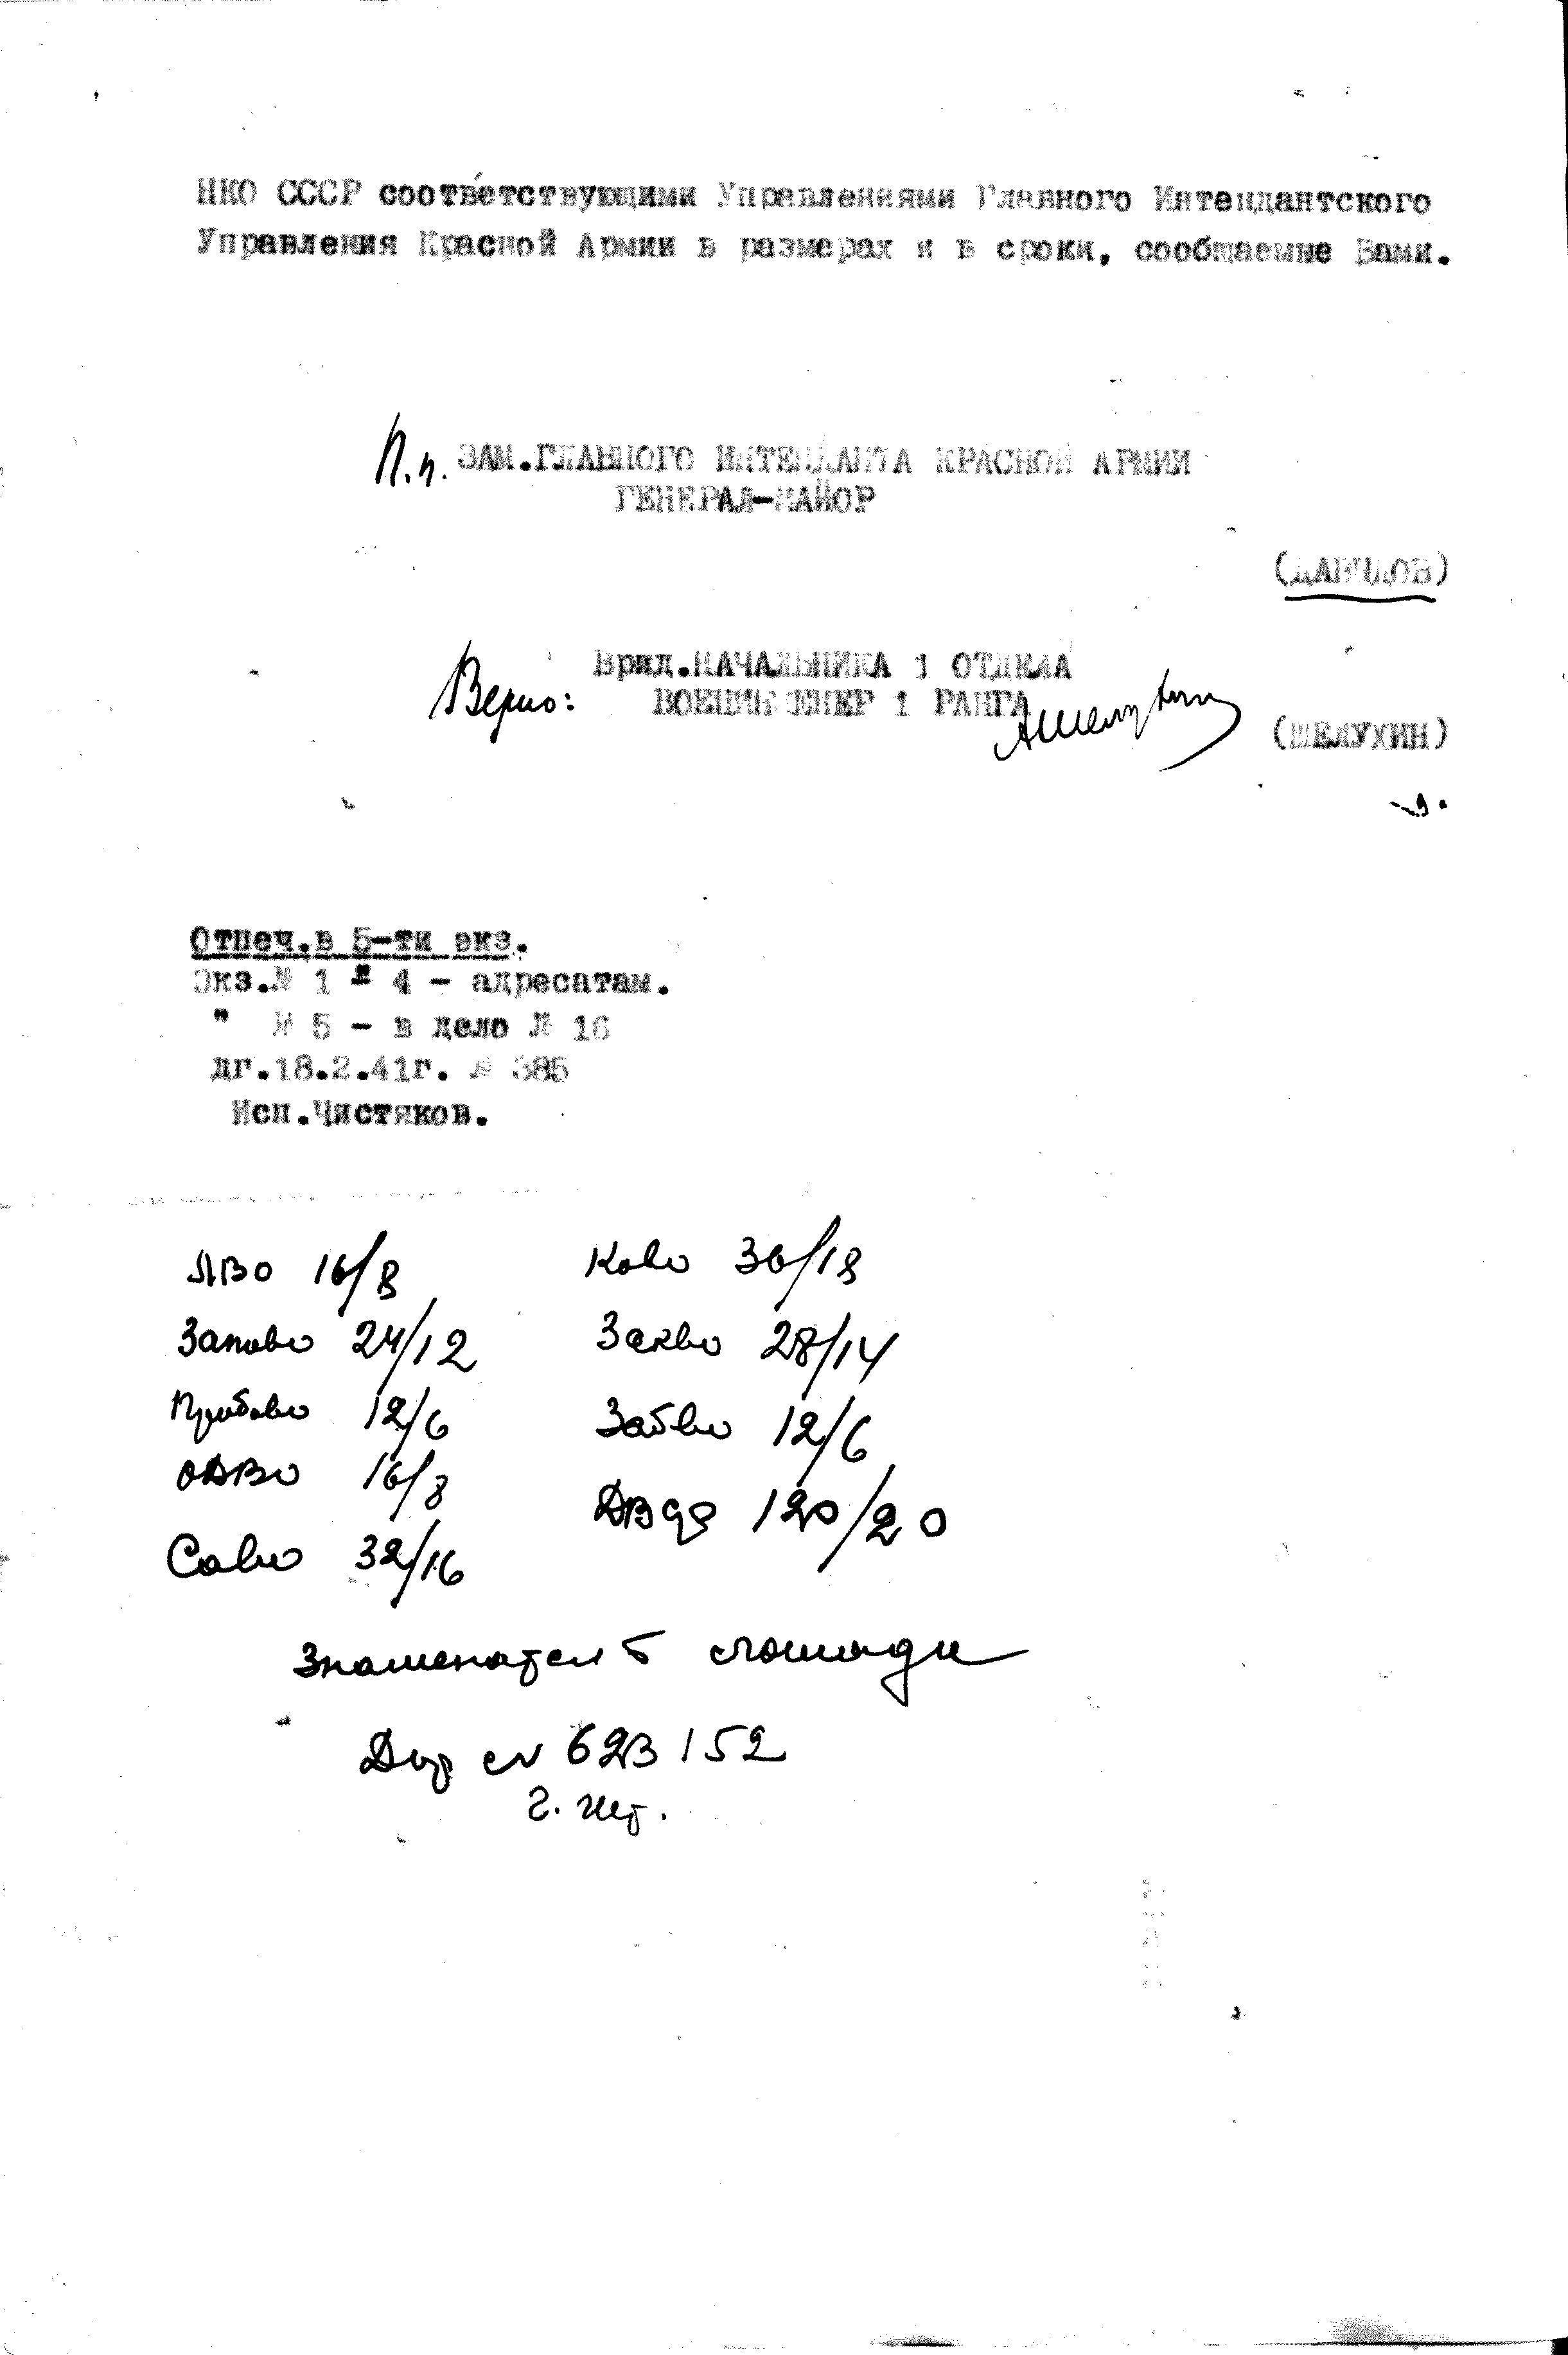 НКО СССР соответствующими Управлениями Главного Интендантского
Управления Красной Армии в размерах и в сроки, сообщаемые Вами.
П.п. ЗАМ.ГЛАВНОГО ИНТЕНДАНТА КРАСНОЙ АРМИИ
ГЕНЕРАЛ-МАЙОР
(ДАВИДОВ)
Верно: Врид.НАЧАЛЬНИКА 1 ОТДЕЛА
ВОЕНИНЖЕНЕР 1 РАНГА
(ШЕЛУХИН)
Отпеч.в 5-ти экз.
Экз.№ 1 " 4 - адресатам.
" № 5 - в дело № 16
дг.18.2.41г. № 385
Исп.Чистяков.
ЛВО 16/8 Ково 36/18
Запово 24/12 Закво 28/14
Прибово 12/6 Забво 12/6
ОДВО 16/8 ДВФ 120/20
Саво 32/16
Знаменатель лошади
623152